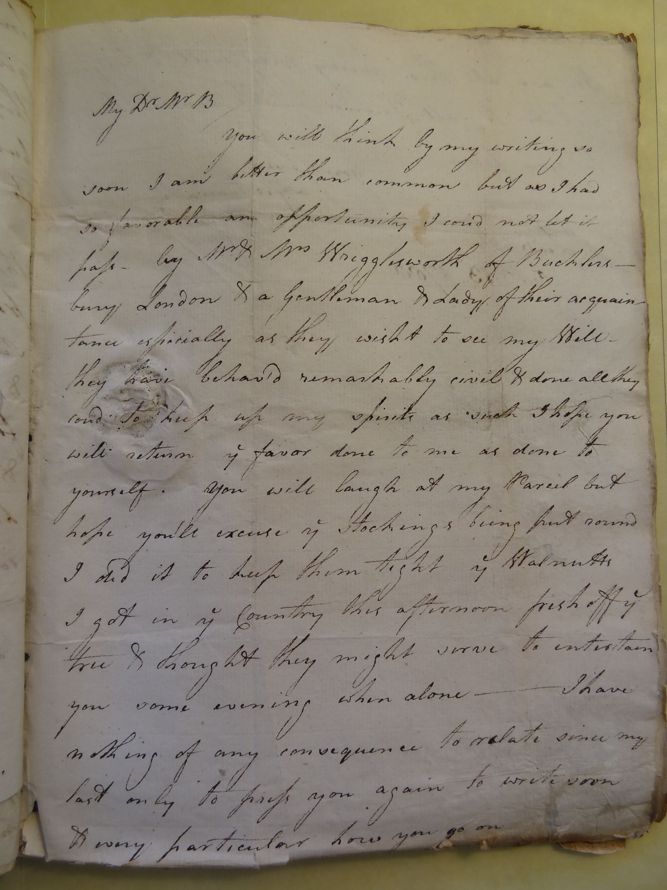 My Dr. Mr B
You will think by my writing so
soon I am better than common but as I had
so favorable an opportunity I coud not let it
pass - by Mr & Mrs Wrigglesworth of Bucklers-
bury London & a Gentleman & Lady of their acquain-
tance especially as they wisht to see my Will -
they have behav'd remarkably civil & done all they
coud to keep up my spirits as such I hope you
will return ye favor done to me as done to
yourself. You will laugh at my Parcel but
hope you'll excuse ye stockings being put round
I did it to keep them tight ye Walnutts
I got in ye Country this afternoon fresh off ye
tree & thought they might serve to entertain
you some evening when alone —— I have
nothing of any consequence to relate since my
last only to press you again to write soon
& very particular how you go on